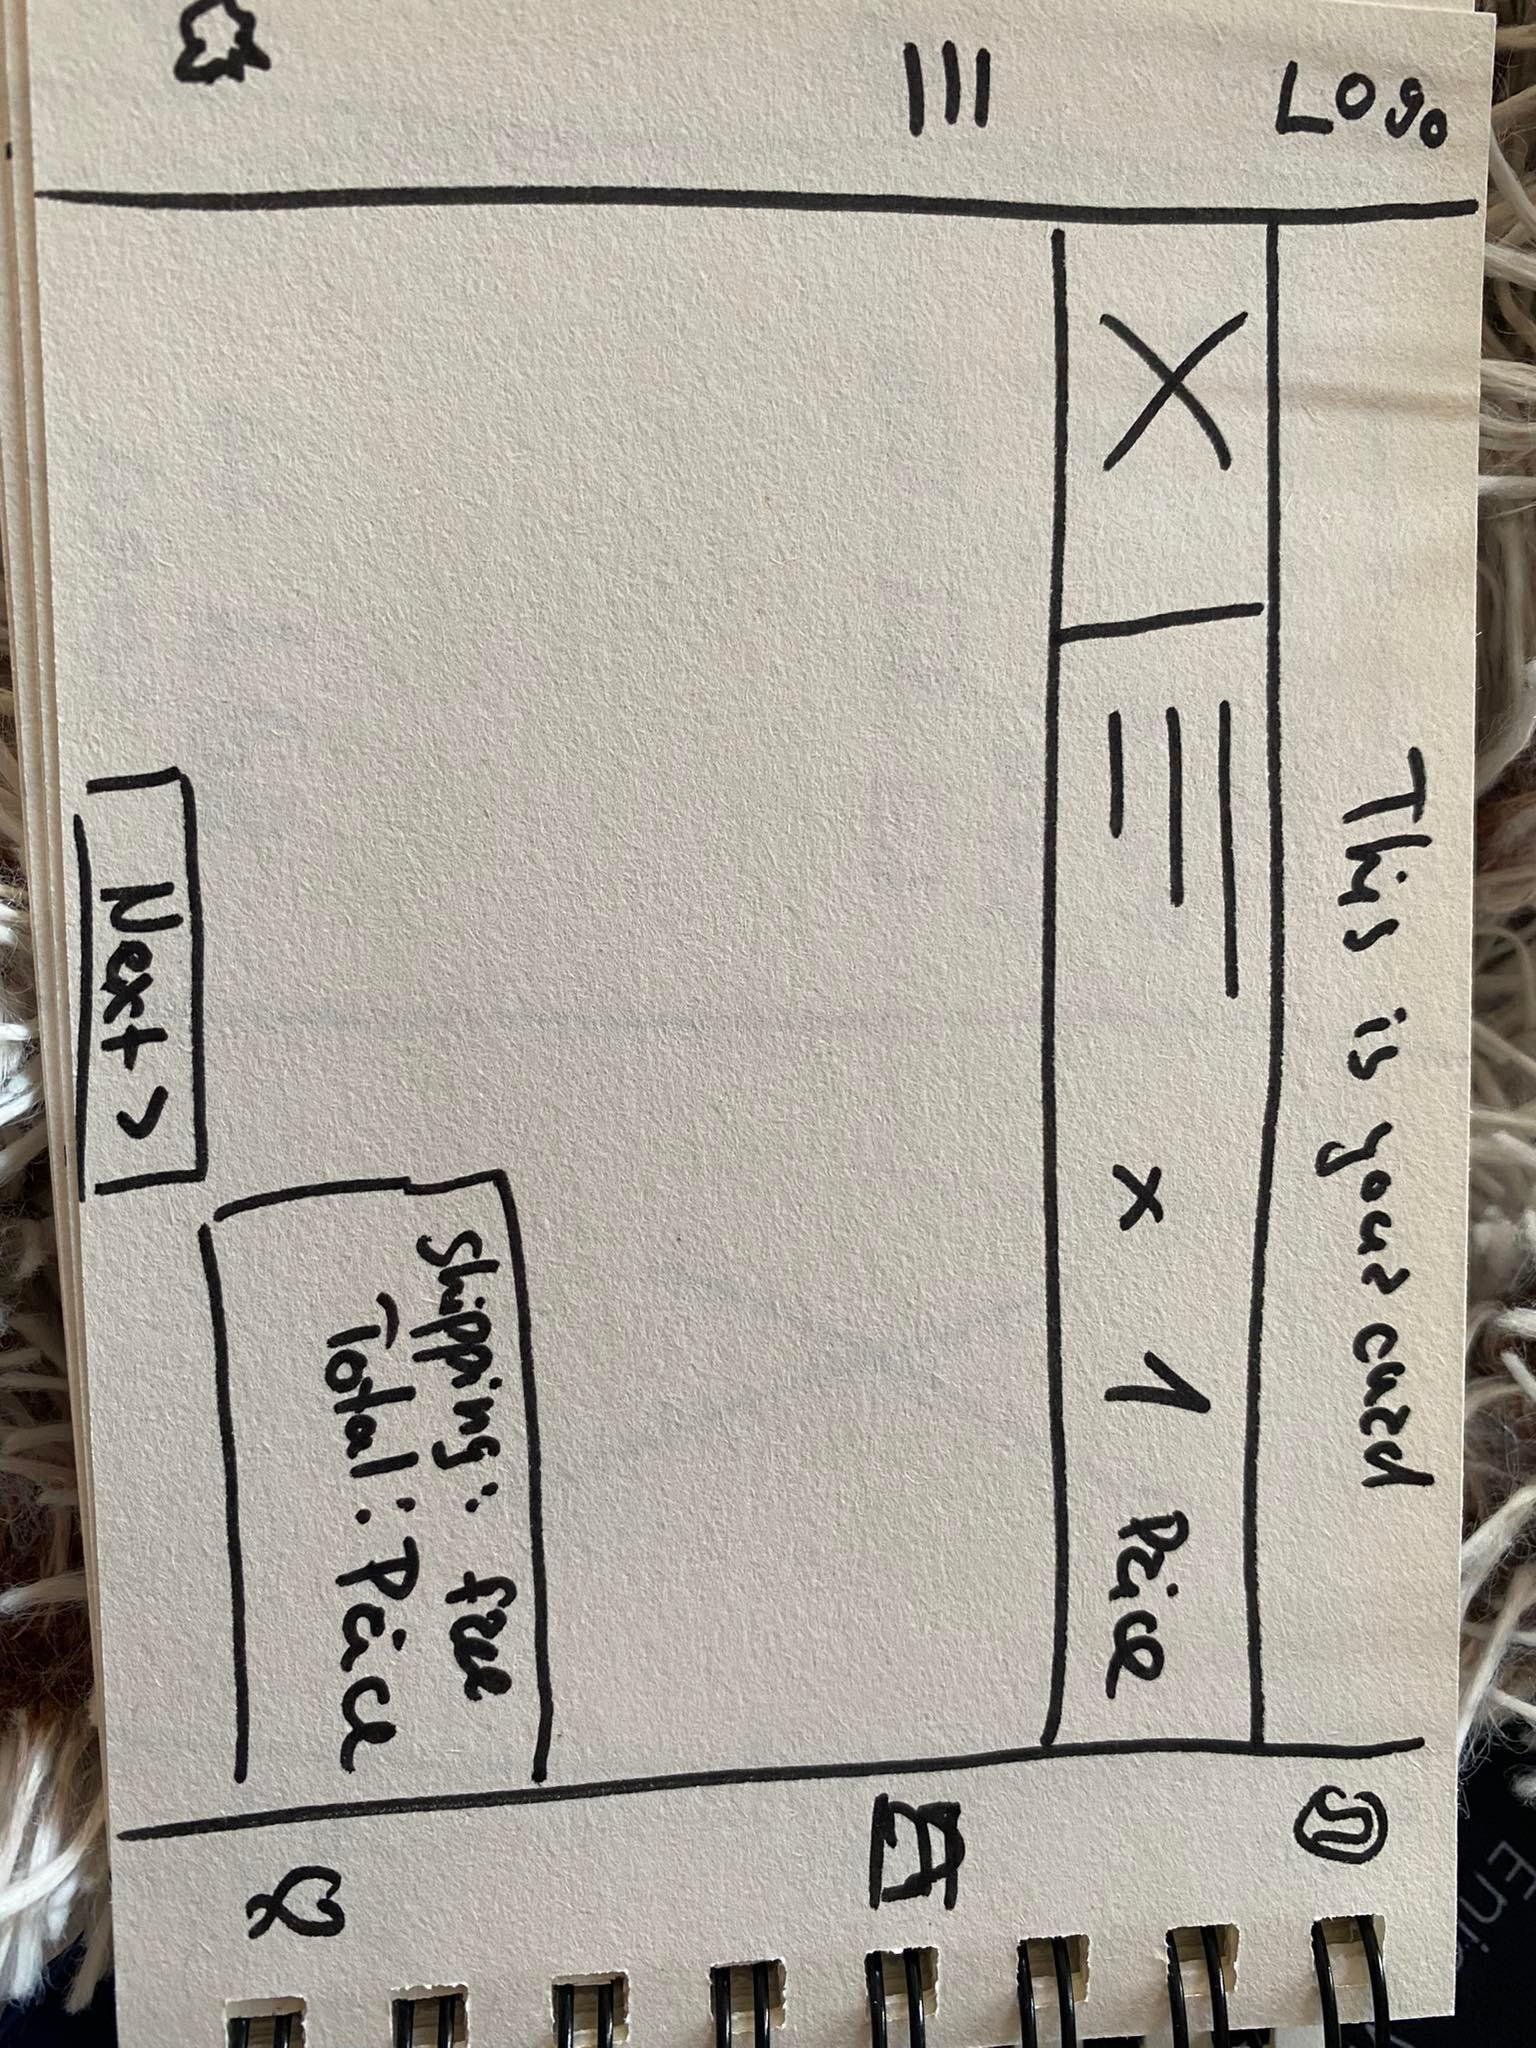 Logo
This is your card
x 1 Price
Shipping: free
Total: Price
Next >